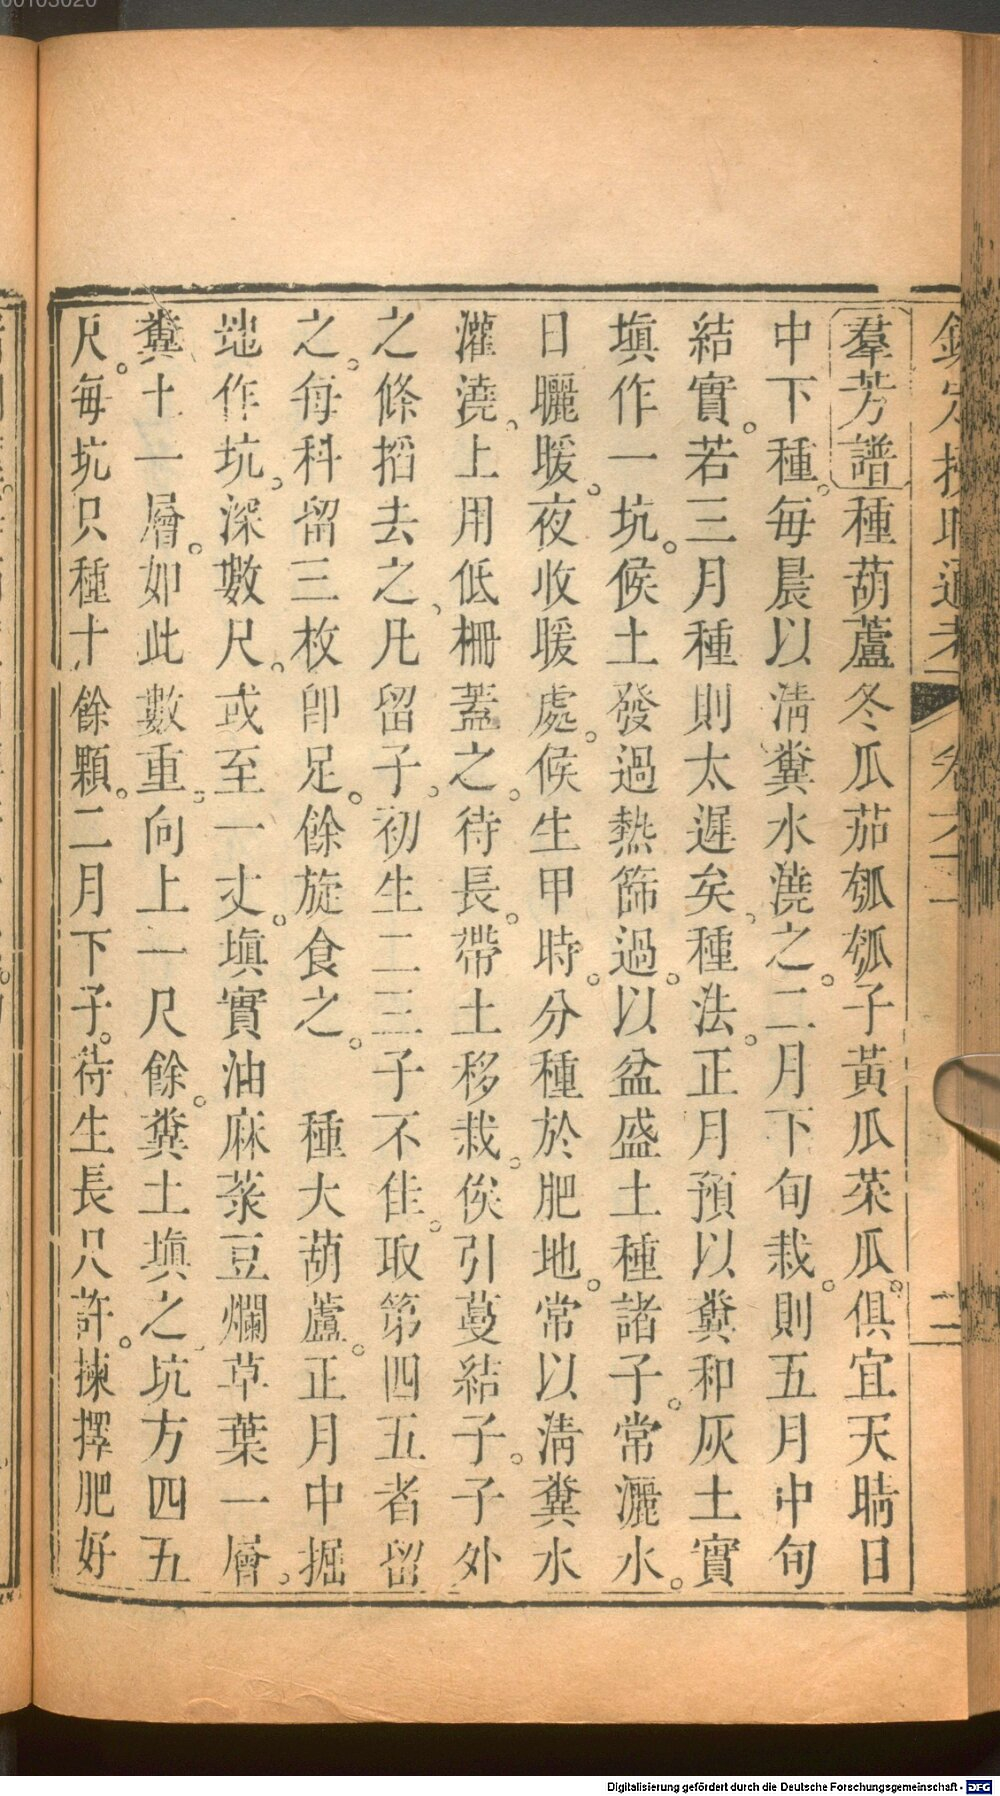 羣芳譜種葫蘆冬瓜茄瓠瓠子黃瓜菜瓜。俱宜天晴日
中下種。每晨以淸糞水澆之。二月下旬栽。則五月中旬
結實。若三月種則太遲矣。種法。正月預以糞和灰土實
塡作一坑。候土發過熱篩過。以盆盛土種諸子。常灑水。
日曬暖。夜收暖處。候生甲時。分種於肥地。常以淸糞水
灌澆。上用低柵蓋之。待長。帶土移栽。俟引蔓結子。子外
之條搯去之。凡留子。初生二三子不佳。取第四五者留
之。每科留三枚卽足。餘旋食之。 種大葫蘆。正月中掘
地作坑。深數尺。或至一丈。塡實油麻菉豆爛草葉一層。
糞土一層。如此數重。向上一尺餘。糞土塡之。坑方四五
尺。每坑只種十餘顆。二月下子。待生長尺許。揀擇肥好
欽定授時通考 卷六 二
Digitalisierung gefördert durch die Deutsche Forschungsgemeinschaft - DFG